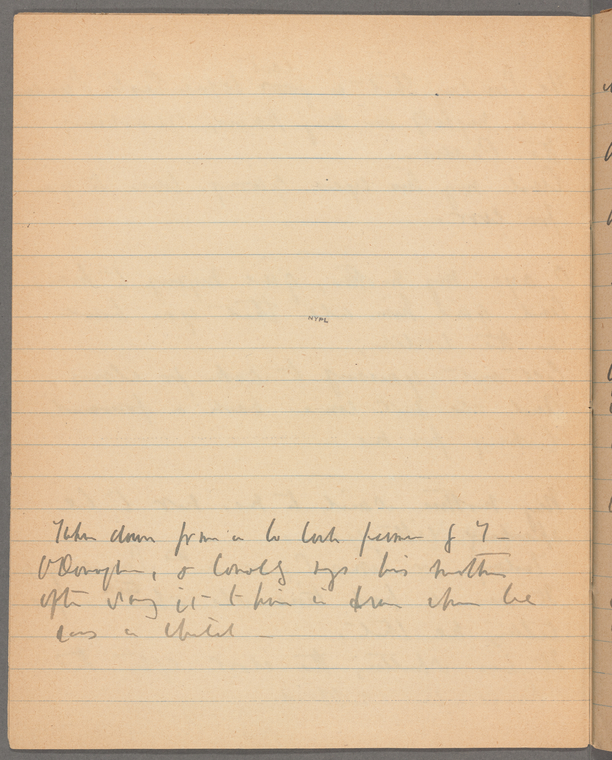 NYPL
Taken down from a Co Cork
O'Donoghue, & Conolly says his mother
often sang it to him in when he
was a child —